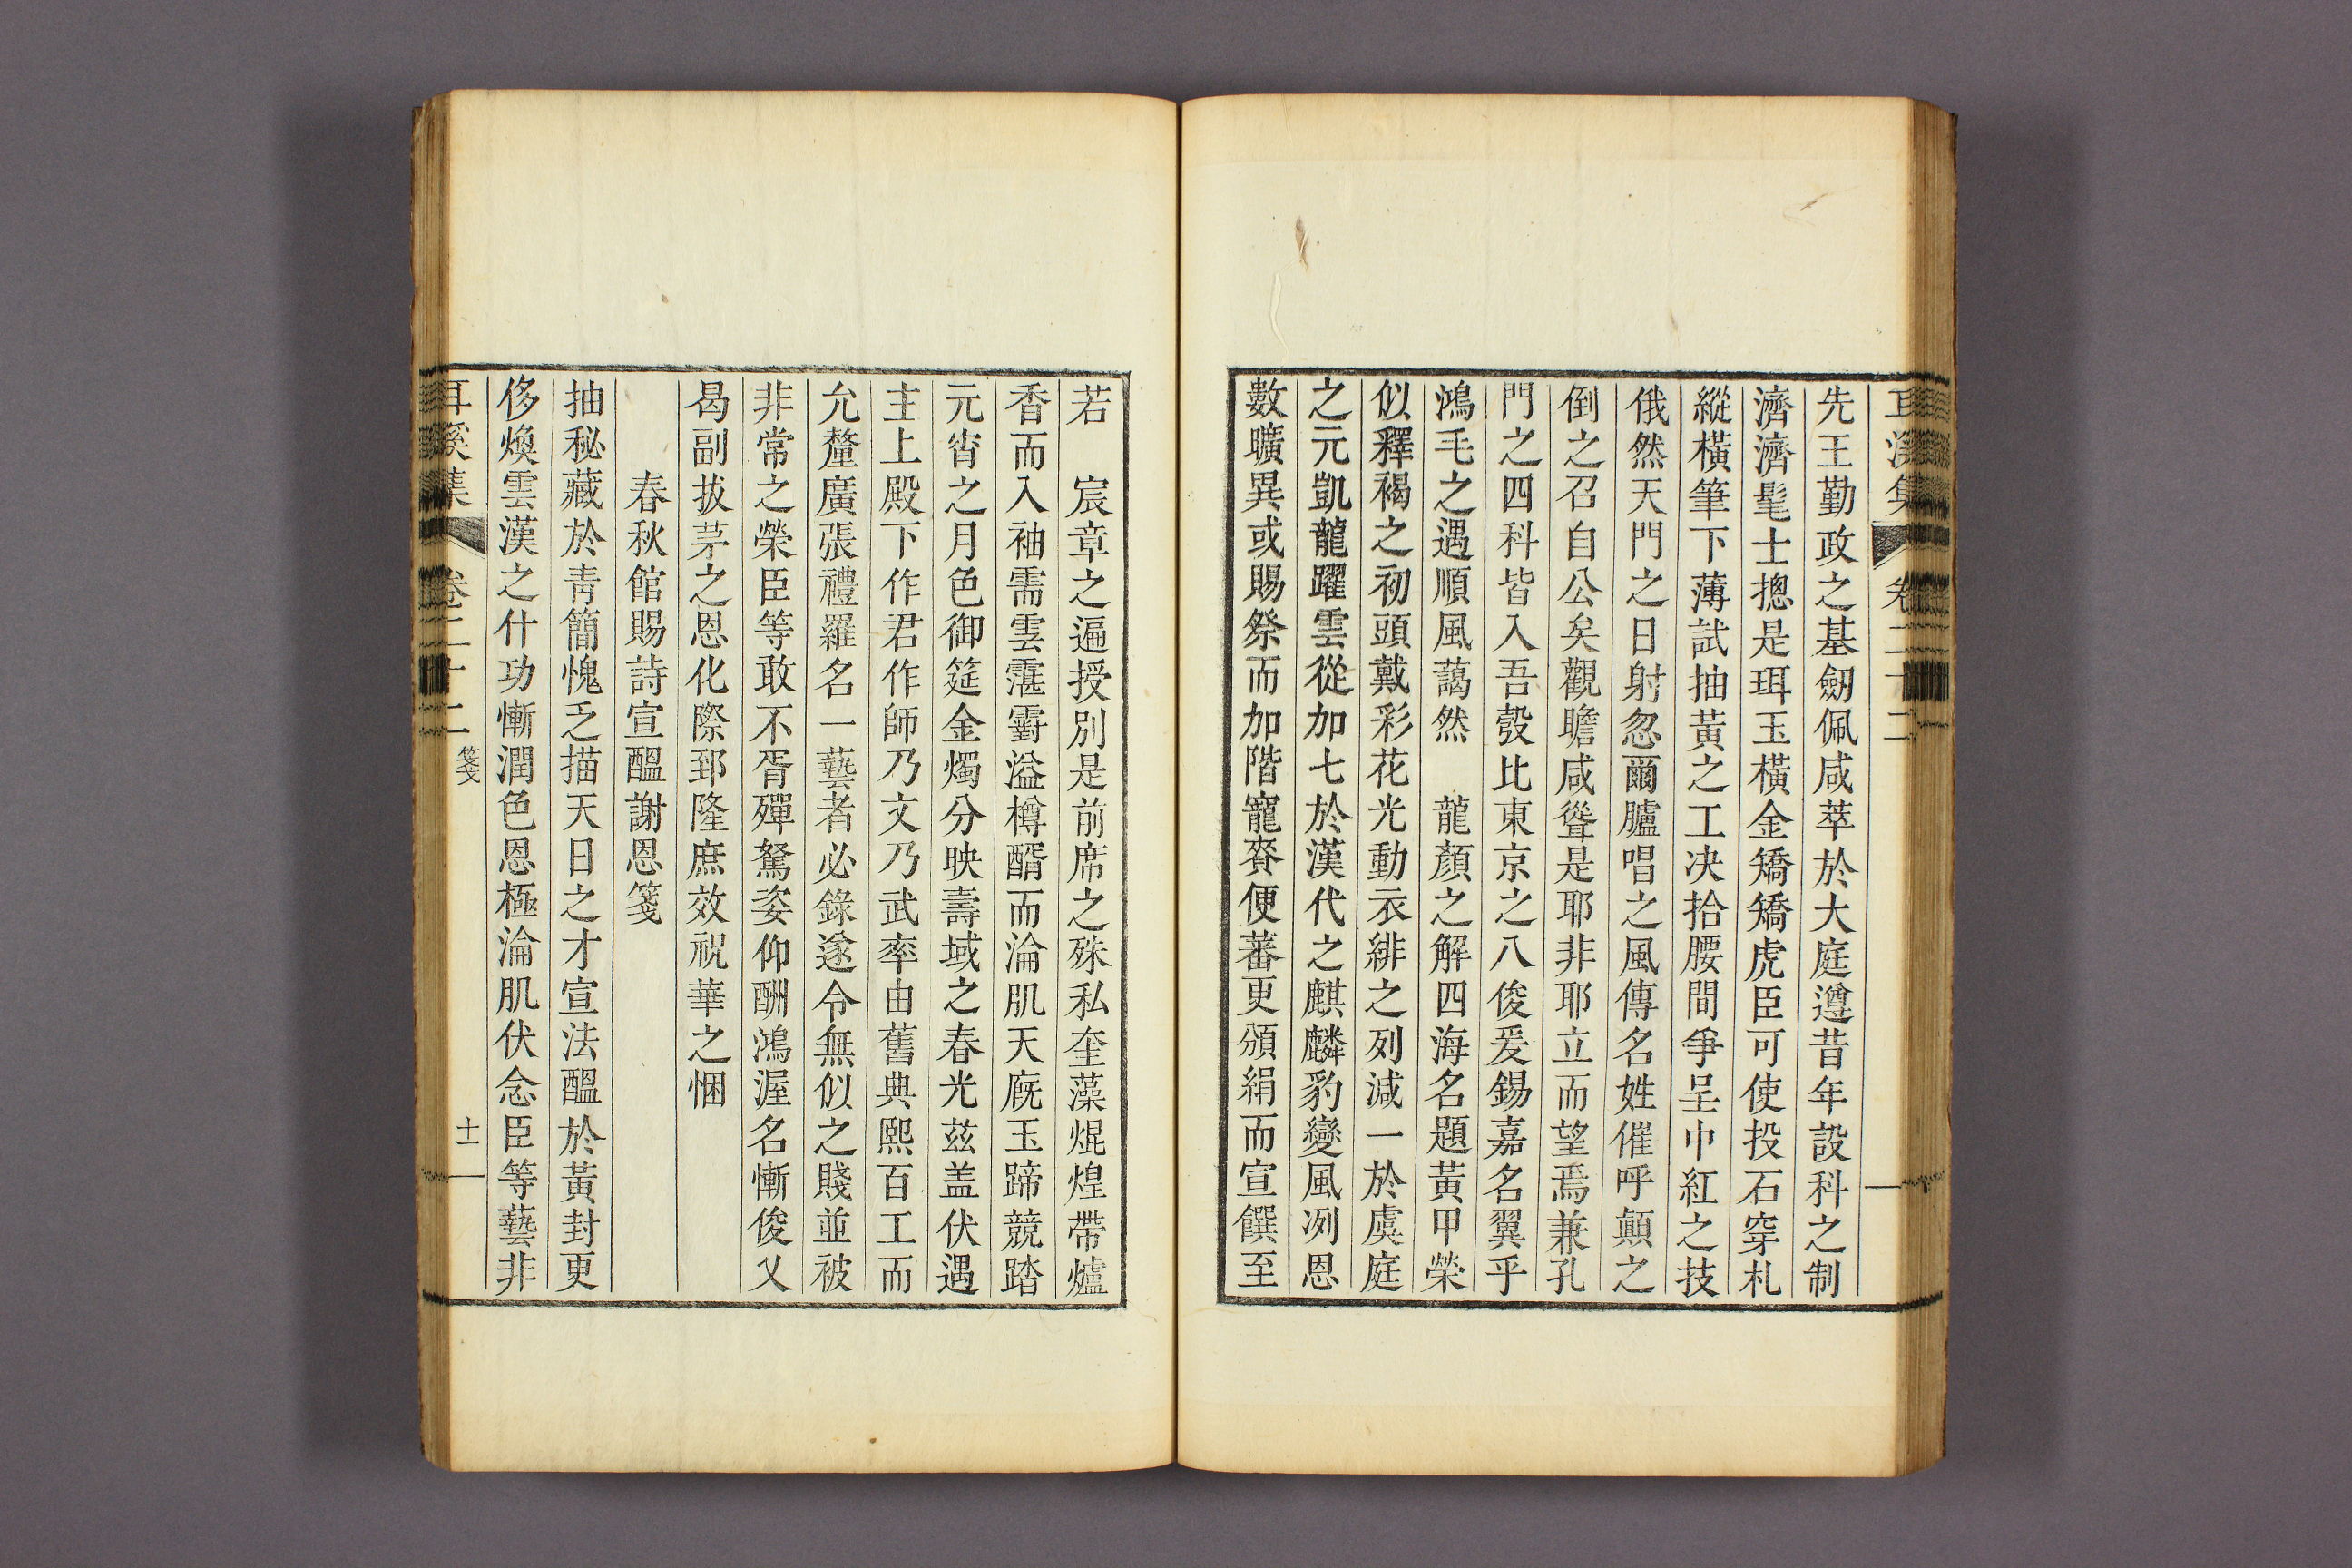 耳溪集 卷二十二
先王勤政之基劒佩咸萃於大庭遵昔年設科之制
濟濟髦士摠是珥玉橫金矯矯虎臣可使投石穿札
縱橫筆下薄試抽黃之工决拾腰間爭呈中紅之技
俄然天門之日射忽爾臚唱之風傳名姓催呼顚之
倒之召自公矣觀瞻咸聳是耶非耶立而望焉兼孔
門之四科皆入吾彀比東京之八俊爰錫嘉名翼乎
鴻毛之遇順風藹然 龍顏之解四海名題黃甲榮
似釋褐之初頭戴彩花光動衣緋之列減一於虞庭
之元凱龍躍雲從加七於漢代之麒麟豹變風冽恩
數曠異或賜祭而加階寵賚便蕃更頒絹而宣饌至
若 宸章之遍授別是前席之殊私奎藻焜煌帶爐
香而入袖需雲霮霨溢樽醑而淪肌天廐玉蹄競踏
元宵之月色御筵金燭分映壽域之春光茲盖伏遇
主上殿下作君作師乃文乃武率由舊典熙百工而
允釐廣張禮羅名一藝者必錄遂令無似之賤並被
非常之榮臣等敢不胥殫駑姿仰酬鴻渥名慚俊乂
曷副拔茅之恩化際郅隆庶效祝華之悃
春秋館賜詩宣醞謝恩箋
抽秘藏於靑簡愧乏描天日之才宣法醞於黃封更
侈煥雲漢之什功慚潤色恩極淪肌伏念臣等藝非
耳溪集 卷二十二 箋 十一